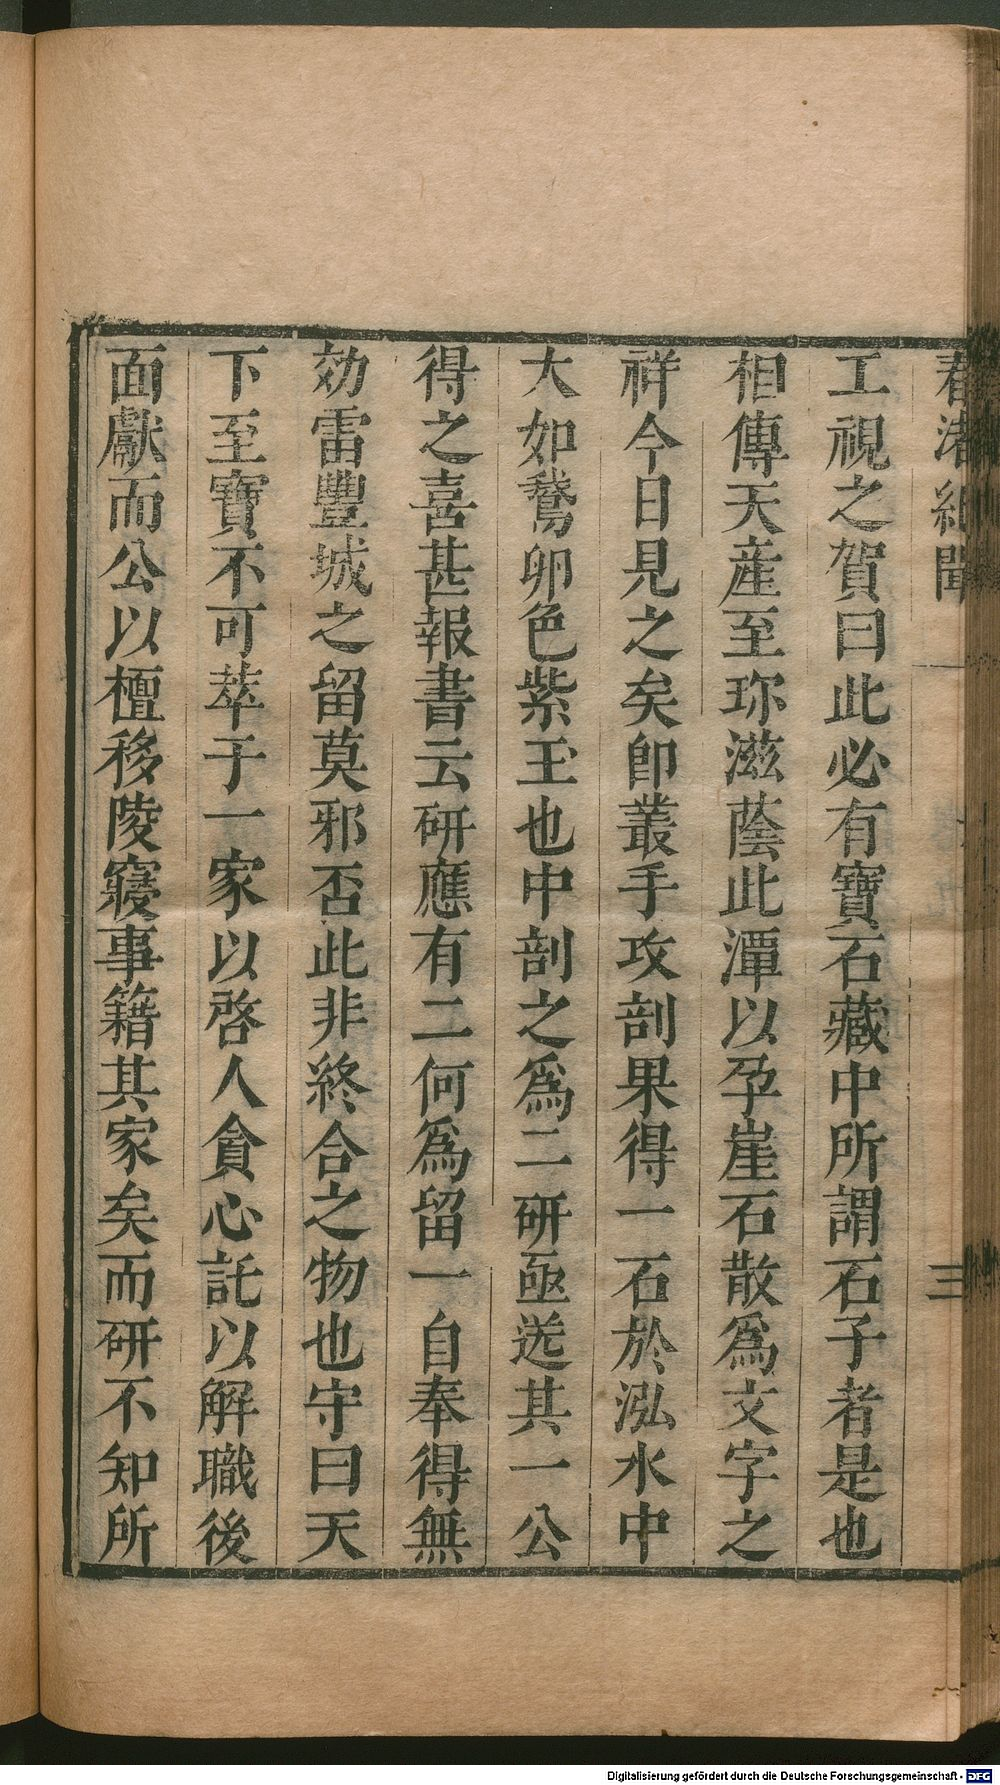 春渚紀聞
三
工視之賀曰此必有寶石藏中所謂石子者是也
相傳天產至珎滋蔭此潭以孕崖石散爲文字之
祥今日見之矣卽叢手攻剖果得一石於泓水中
大如鵞卵色紫玉也中剖之爲二研亟送其一公
得之喜甚報書云研應有二何爲留一自奉得無
効雷豐城之留莫邪否此非終合之物也守曰天
下至寶不可萃于一家以啓人貪心託以解職後
面獻而公以檀移陵寢事籍其家矣而研不知所
Digitalisierung gefördert durch die Deutsche Forschungsgemeinschaft - DFG